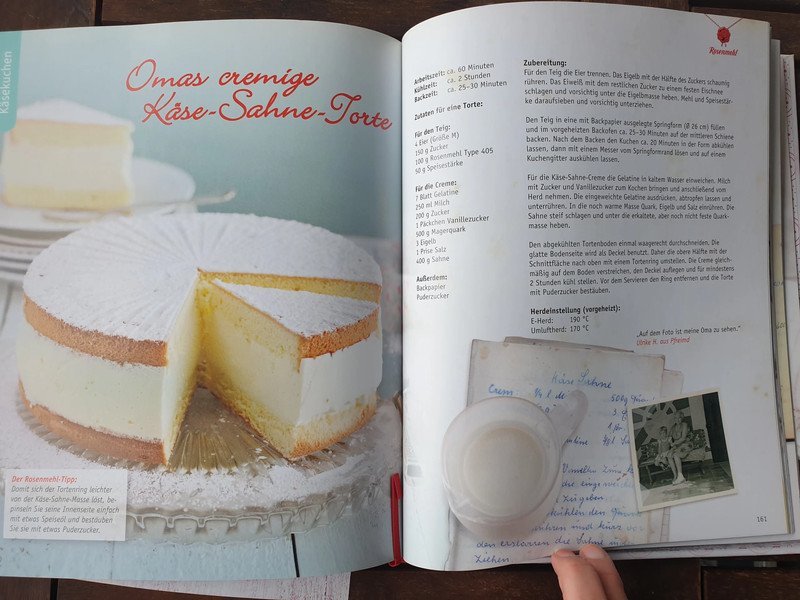 Käsekuchen
Omas cremige
Käse-Sahne-Torte
Der Rosenmehl-Tipp:
Damit sich der Tortenring leichter
von der Käse-Sahne-Masse löst, be-
pinseln Sie seine Innenseite einfach
mit etwas Speiseöl und bestäuben
Sie sie mit etwas Puderzucker.
Arbeitszeit: ca. 60 Minuten
Kühlzeit: ca. 2 Stunden
Backzeit: ca. 25-30 Minuten
Zutaten für eine Torte:
Für den Teig:
4 Eier (Größe M)
150 g Zucker
100 g Rosenmehl Type 405
50 g Speisestärke
Für die Creme:
7 Blatt Gelatine
250 ml Milch
200 g Zucker
1 Päckchen Vanillezucker
500 g Magerquark
3 Eigelb
1 Prise Salz
400 g Sahne
Außerdem:
Backpapier
Puderzucker
Rosenmehl
Zubereitung:
Für den Teig die Eier trennen. Das Eigelb mit der Hälfte des Zuckers schaumig
rühren. Das Eiweiß mit dem restlichen Zucker zu einem festen Eischnee
schlagen und vorsichtig unter die Eigelbmasse heben. Mehl und Speisestär-
ke daraufsieben und vorsichtig unterziehen.
Den Teig in eine mit Backpapier ausgelegte Springform (Ø 26 cm) füllen
und im vorgeheizten Backofen ca. 25-30 Minuten auf der mittleren Schiene
backen. Nach dem Backen den Kuchen ca. 20 Minuten in der Form abkühlen
lassen, dann mit einem Messer vom Springformrand lösen und auf einem
Kuchengitter auskühlen lassen.
Für die Käse-Sahne-Creme die Gelatine in kaltem Wasser einweichen. Milch
mit Zucker und Vanillezucker zum Kochen bringen und anschließend vom
Herd nehmen. Die eingeweichte Gelatine ausdrücken, abtropfen lassen und
unterrühren. In die noch warme Masse Quark, Eigelb und Salz einrühren. Die
Sahne steif schlagen und unter die erkaltete, aber noch nicht feste Quark-
masse heben.
Den abgekühlten Tortenboden einmal waagerecht durchschneiden. Die
glatte Bodenseite wird als Deckel benutzt. Daher die obere Hälfte mit der
Schnittfläche nach oben mit einem Tortenring umstellen. Die Creme gleich-
mäßig auf dem Boden verstreichen, den Deckel auflegen und für mindestens
2 Stunden kühl stellen. Vor dem Servieren den Ring entfernen und die Torte
mit Puderzucker bestäuben.
Herdeinstellung (vorgeheizt):
E-Herd: 190 °C
Umluftherd: 170 °C
„Auf dem Foto ist meine Oma zu sehen."
Ulrike H. aus Pfreimd
Käse Sahne
Crem 1/4 l
500g
Vanille
zugeben
den erstarren die Sahne
ziehen
161